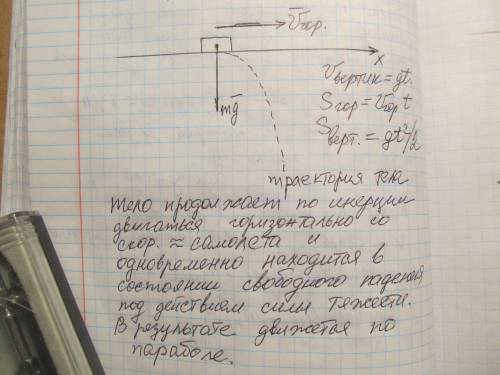 V̅гор.
x
mg̅
Vвертик = gt.
Sгор = Vгор t
Sверт. = gt²/2
траектория тела
Тело продолжает по инерции
двигаться горизонтально со
скор. ≈ самолета и
одновременно находится в
состоянии свободного падения
под действием силы тяжести.
В результате движется по
параболе.